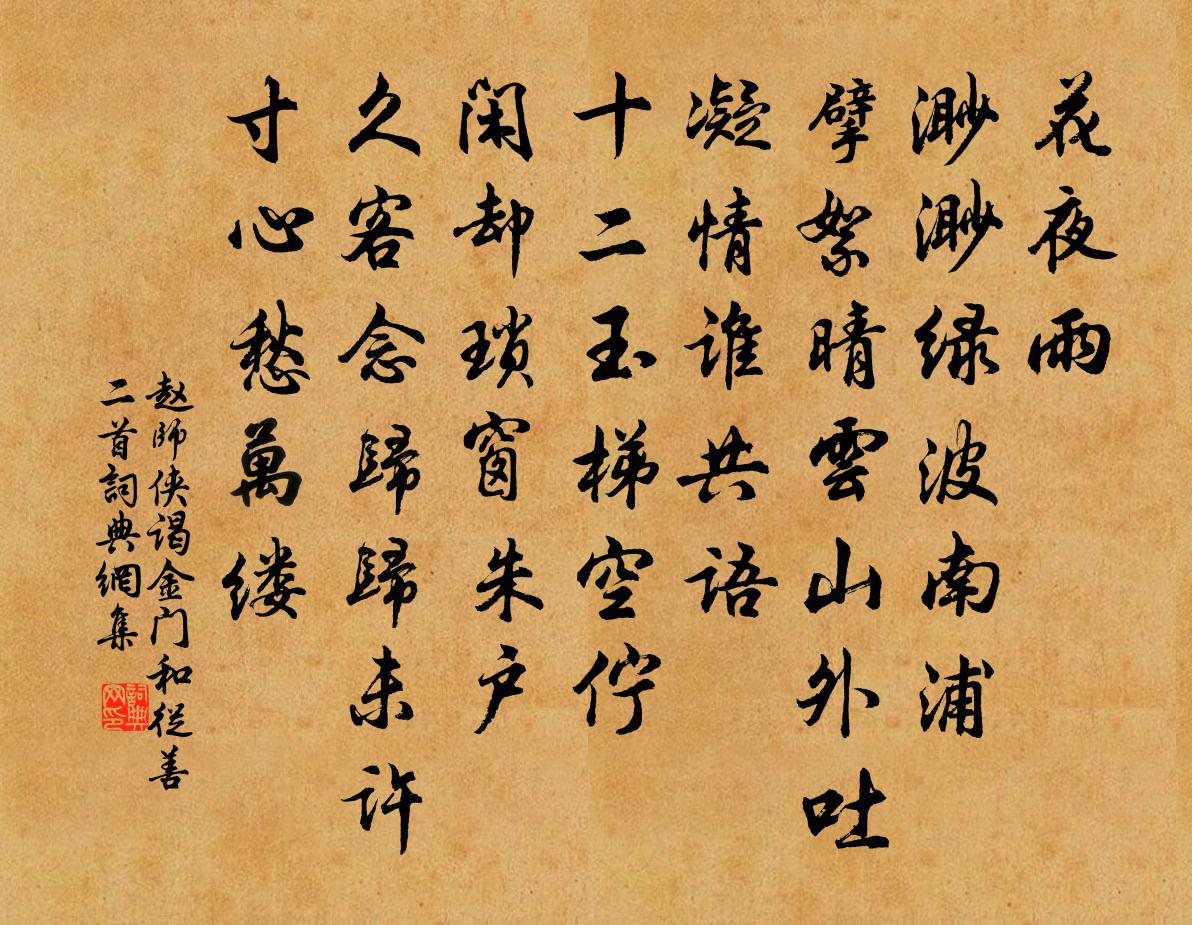 花夜雨
渺渺绿波南浦
擘絮晴雲山外吐
凝情谁共语
十二玉梯空伫
闲却琐窗朱户
久客念歸歸未许
寸心愁萬缕
赵師侠谒金门和從善
二首詞典網集
詞典网印